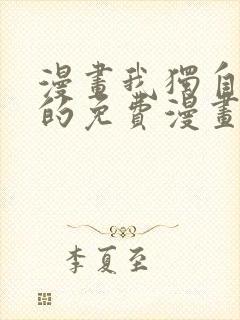 漫畫我獨自
的免費漫畫
李夏至